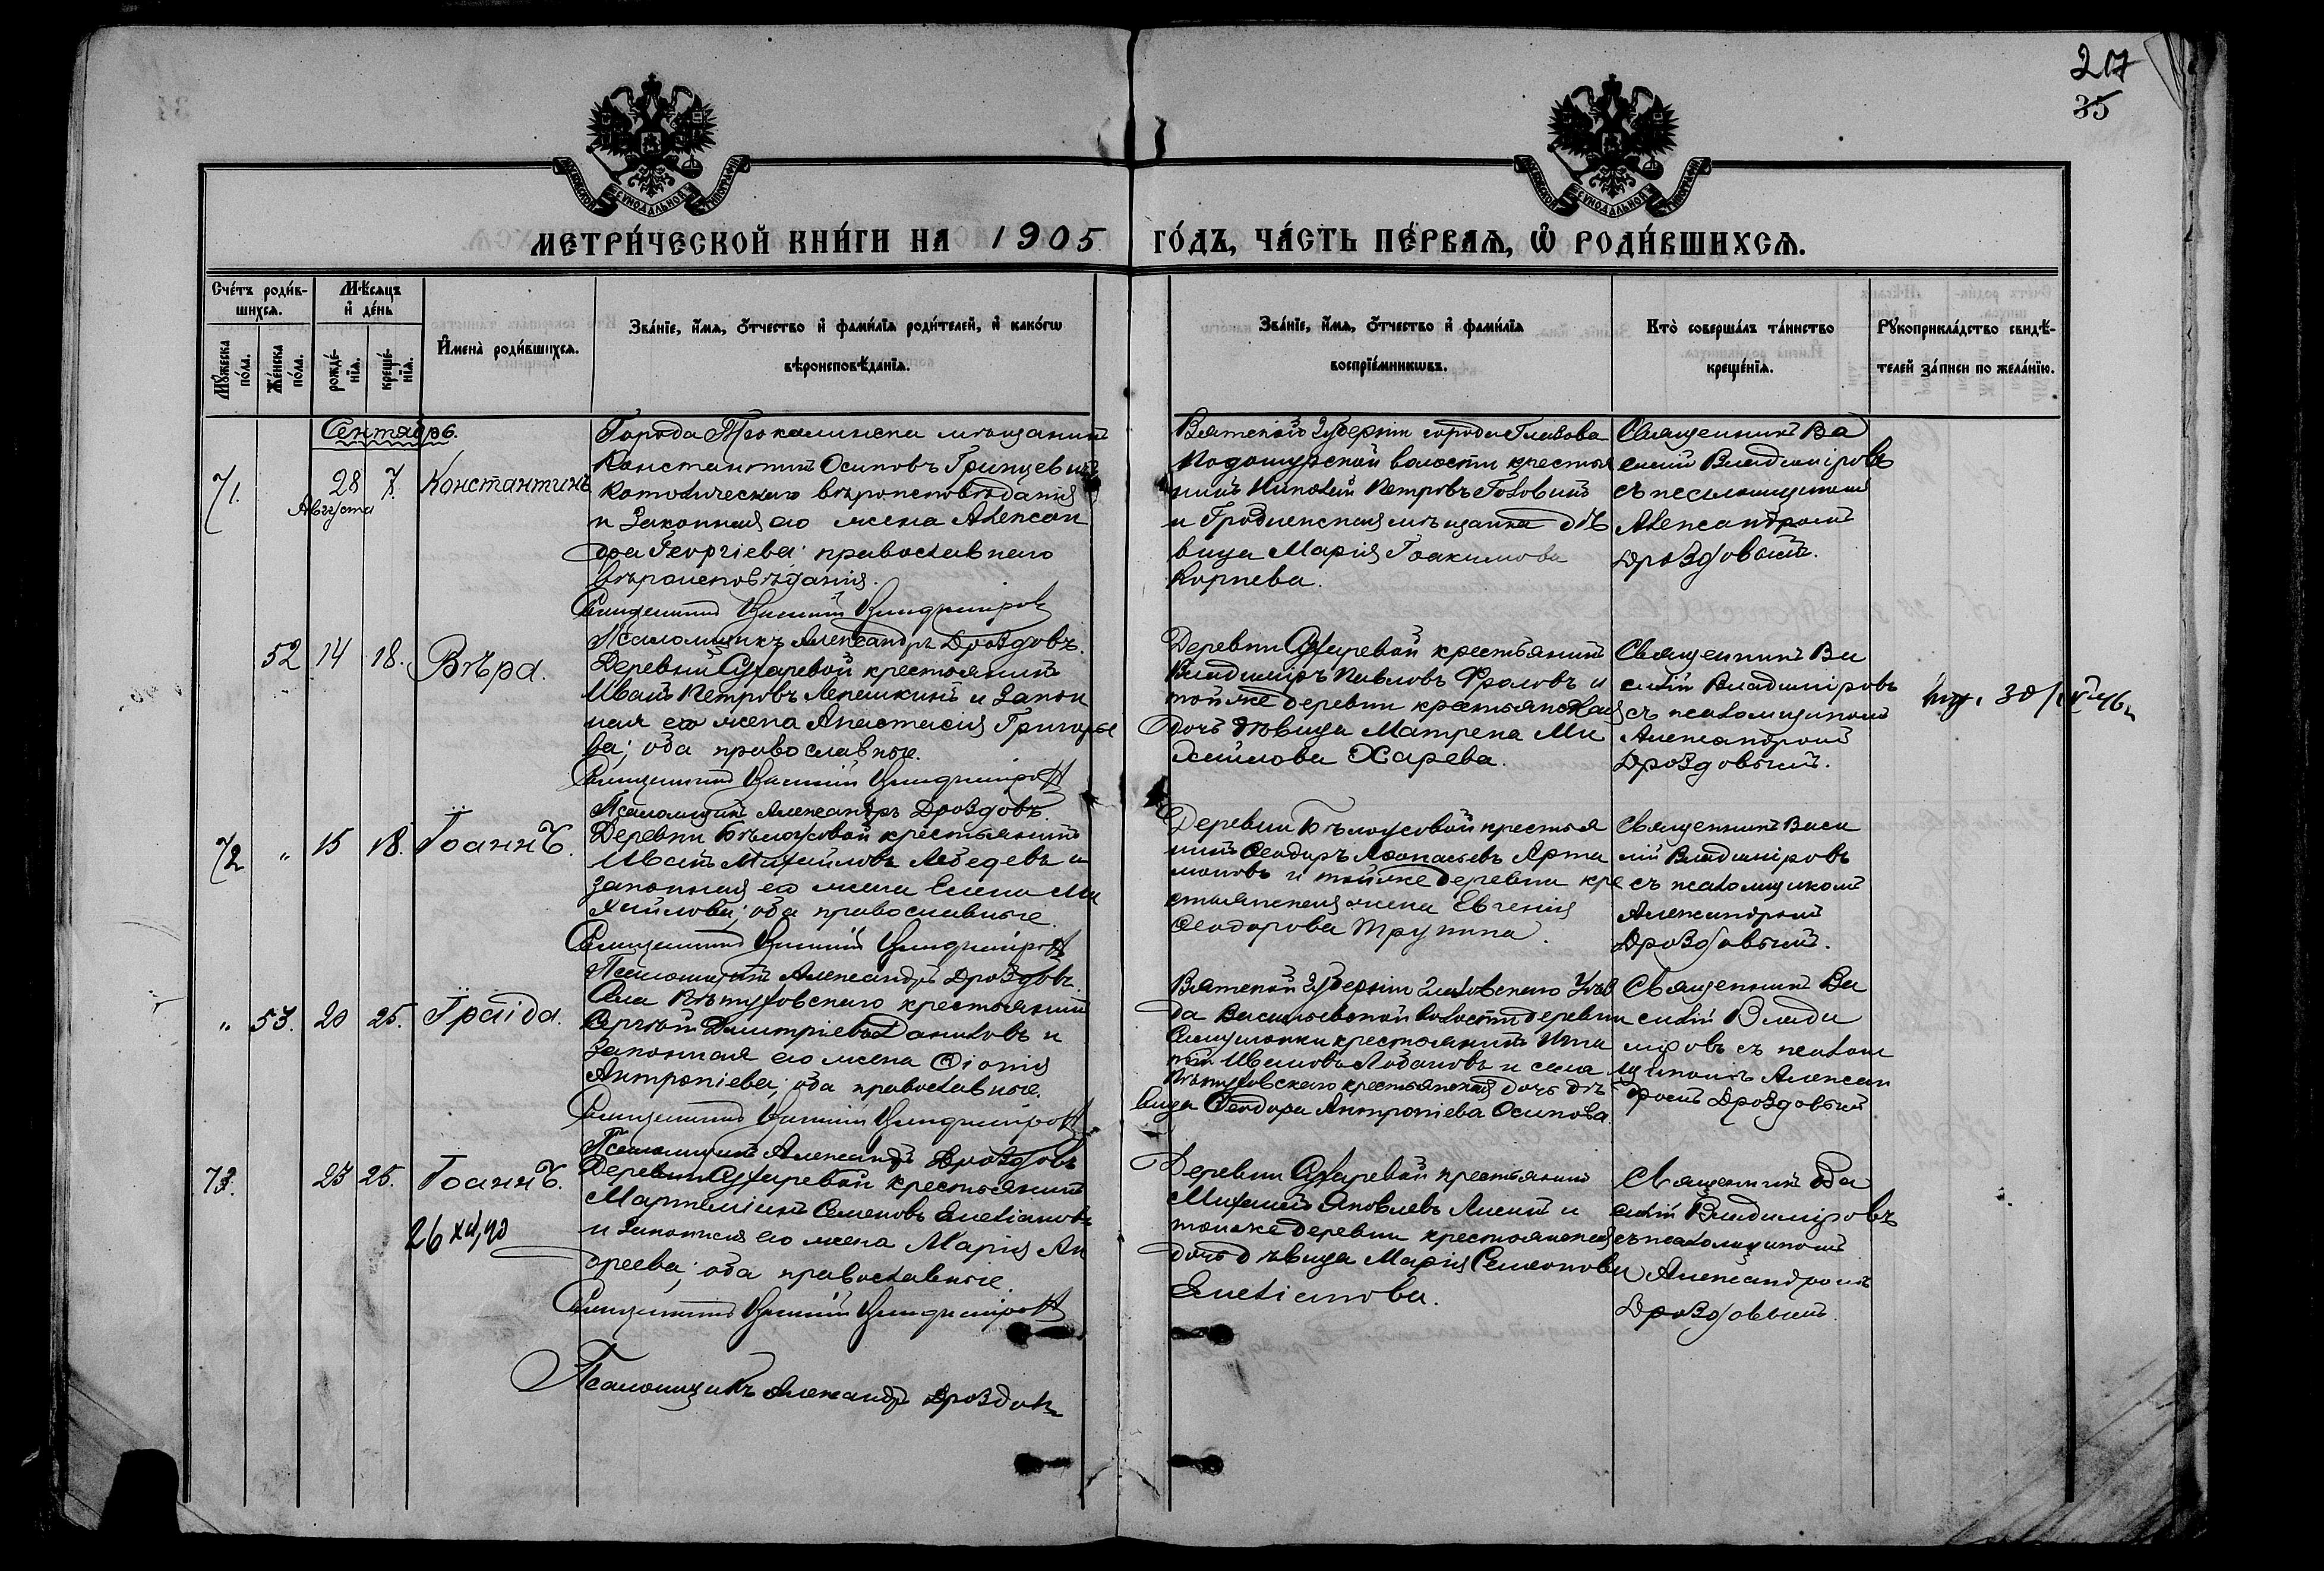 217
35
МОСКОВСКОЙ СѴНОДАЛЬНОЙ ТИПОГРАФІИ
МОСКОВСКОЙ СѴНОДАЛЬНОЙ ТИПОГРАФІИ
МЕТРИ́ЧЕСКОЙ КНИ́ГИ НА 1905 ГО́ДЪ, ЧА́СТЬ ПЕ́РВАѦ, Ѡ҆ РОДИ́ВШИХСѦ.
Сче́тъ роди́в-
шихсѧ.
Мꙋ́жеска по́ла.
Же́нска по́ла.
Мѣ́сѧцъ и҆ де́нь
рожде́-нїѧ.
креще́-нїѧ.
И҆мена̀ роди́вшихсѧ.
Зва́нїе, и҆́мѧ, ѻ҆́тчество и҆ фами́лїѧ роди́телей, и҆ како́гѡ
вѣроисповѣ́данїѧ.
Зва́нїе, и҆́мѧ, ѻ҆́тчество и҆ фами́лїѧ
воспрїе́мникѡвъ.
Кто̀ соверша́лъ та́инство
креще́нїѧ.
Рꙋкоприкла́дство свидѣ́-
телей за́писи по жела́нїю.
Сентябрь.
71.
28 Августа
7.
Константинъ
Города мѣщанинъ
Константинъ Осиповъ Гринцевичъ
католическаго вѣроисповѣданія
и законная его жена Алексан
дра Георгіева; православнаго
вѣроисповѣданія.
Священникъ Василій Владиміровъ
Псаломщикъ Александръ Дроздовъ.
Вятской губерніи города Глазова
волости крестья
нинъ Петровъ
и Гродненская мѣщанка дѣ
вица Марія Іоакимова
Корнева.
Священникъ Ва
силій Владиміровъ
съ псаломщикомъ
Александромъ
Дроздовымъ.
52
14
18.
Вѣра.
Деревни Сухаревой крестьянинъ
Иванъ Петровъ Лепешкинъ и закон
ная его жена Анастасия Григорье
ва; оба православные.
Священникъ Василій Владиміровъ
Псаломщикъ Александръ Дроздовъ.
Деревни Сухаревой крестьянинъ
Владиміръ Павловъ Фроловъ и
тойже деревни крестьянская
дочь дѣвица Матрена Ми
хайлова Харева.
Священникъ Ва
силій Владиміровъ
съ псаломщикомъ
Александромъ
Дроздовымъ.
72
"
15
18.
Іоаннъ.
Деревни Бѣлоусовой крестьянинъ
Иванъ Михайловъ Лебедевъ и
законная его жена Елена Ми
хайлова; оба православные.
Священникъ Василій Владиміровъ
Псаломщикъ Александръ Дроздовъ.
Деревни Бѣлоусовой крестья
нинъ Ѳеодоръ Аѳанасьевъ Арта
моновъ и тойже деревни кре
стьянская жена Евгенія
Ѳеодорова Трупина.
Священникъ Васи
лій Владиміровъ
съ псаломщикомъ
Александромъ
Дроздовымъ.
"
53.
20
25.
Ираида.
Села Пѣтуховскаго крестьянинъ
Сергѣй Димитріевъ Даниловъ и
законная его жена Ѳіонія
Антропіева; оба православные.
Священникъ Василій Владиміровъ
Псаломщикъ Александръ Дроздовъ
Вятской губерніи Глазовскаго Уѣз
да Васильевской волости деревни
крестьянинъ
Ивановъ Лобановъ и села
Пѣтуховскаго крестьянская дочь дѣ
вица Ѳеодора Антропіева Осипова.
Священникъ Ва
силій Влади
міровъ съ псалом
щикомъ Алексан
дромъ Дроздовымъ
73.
23
25.
Іоаннъ.
Деревни Сухаревой крестьянинъ
Мартиміанъ Семеновъ Емеліановъ
и законная его жена Марія Ан
дреева; оба православные.
Священникъ Василій Владиміровъ
Псаломщикъ Александръ Дроздовъ
Деревни Сухаревой крестьянинъ
Михаилъ Яковлевъ и
тойже деревни крестьянская
дочь дѣвица Марія Семенова
Емеліанова.
Священникъ Ва
силій Владиміровъ
съ псаломщикомъ
Александромъ
Дроздовымъ.